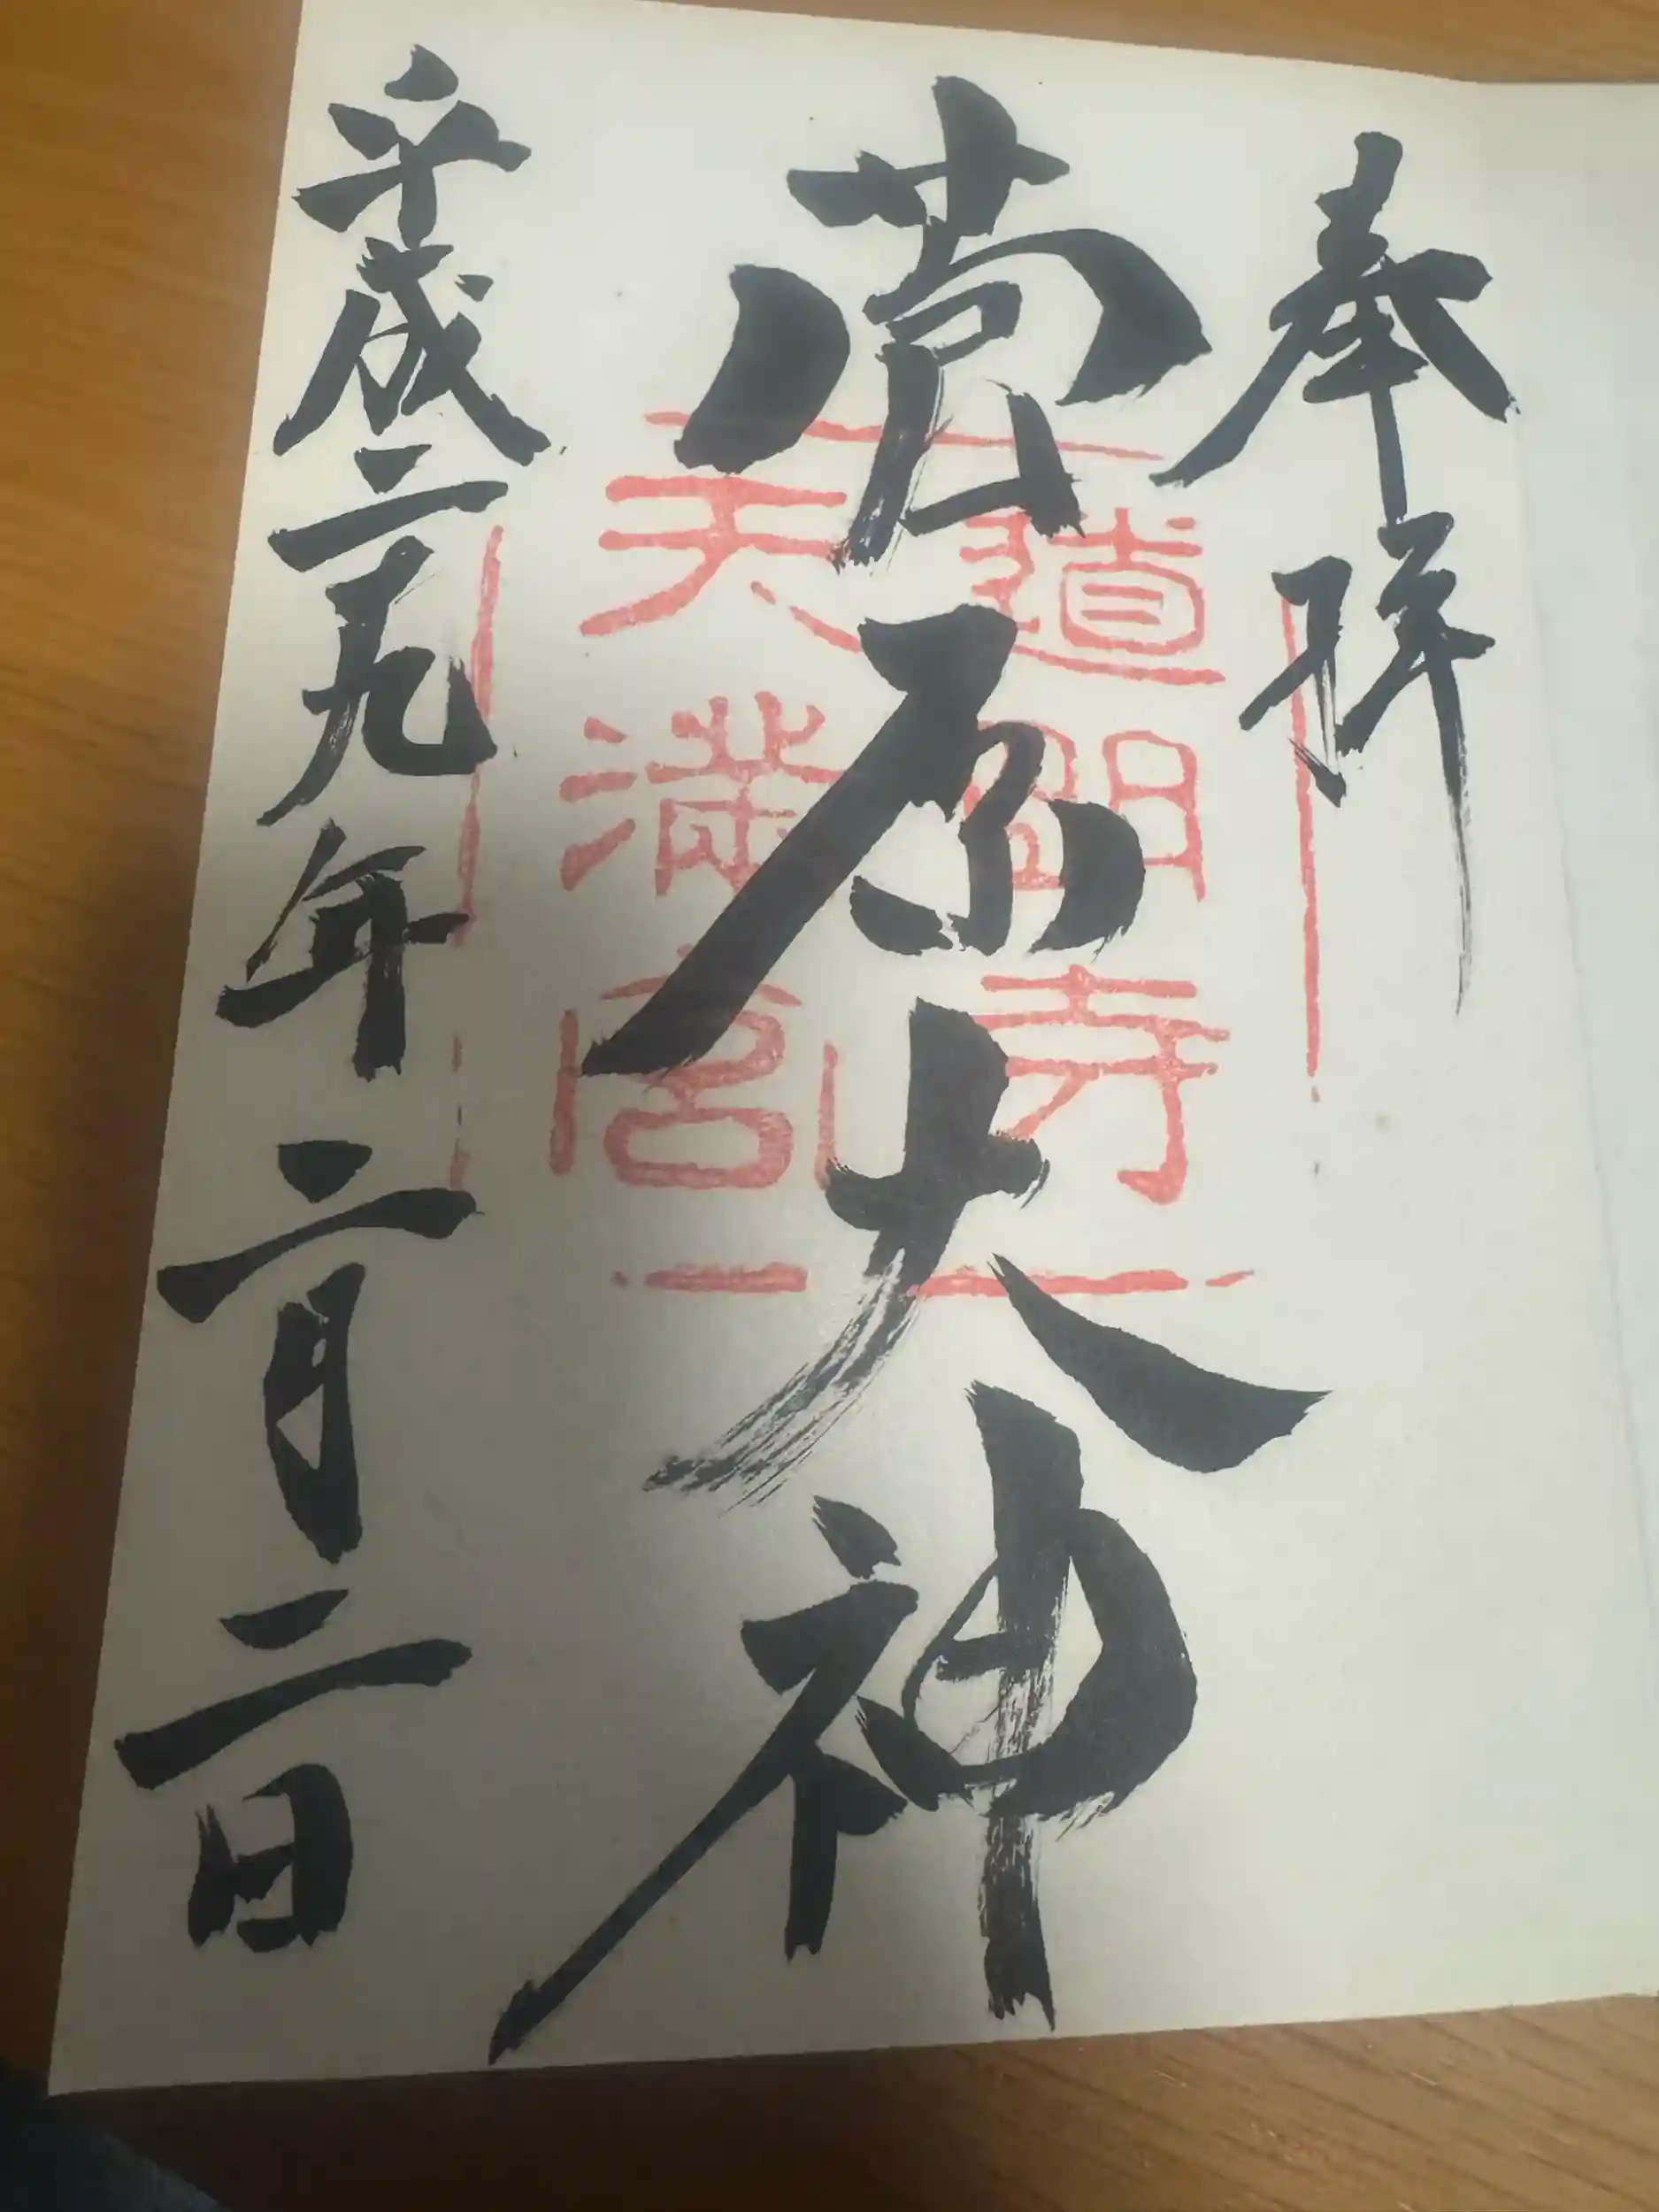 奉拝
菅原大神
道明寺
天満宮
平成二十九年二月二日